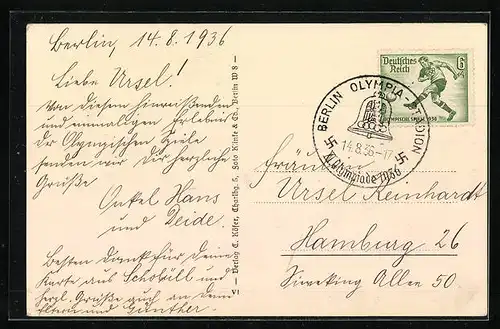 Berlin, 14.8.1936
Liebe Ursel!
Von diesem hinreißenden
und einmaligen Erlebnis
der Olympischen Spiele
senden wir Dir herzliche
Grüße
Onkel Hans
und Deide.
Besten Dank für Deine
Karte aus Schobüll und
herzl. Grüße auch an Deine
Eltern und Günther.
Verlag C. Käser, Charlbg. 5, Foto Klinke & Co. Berlin W 8 —
Deutsches Reich 6
BERLIN OLYMPIA STADION
14.8.36.-17
XI. Olympiade 1936
Fräulein
Ursel Reinhardt
Hamburg 26
Sieveking Allee 50.